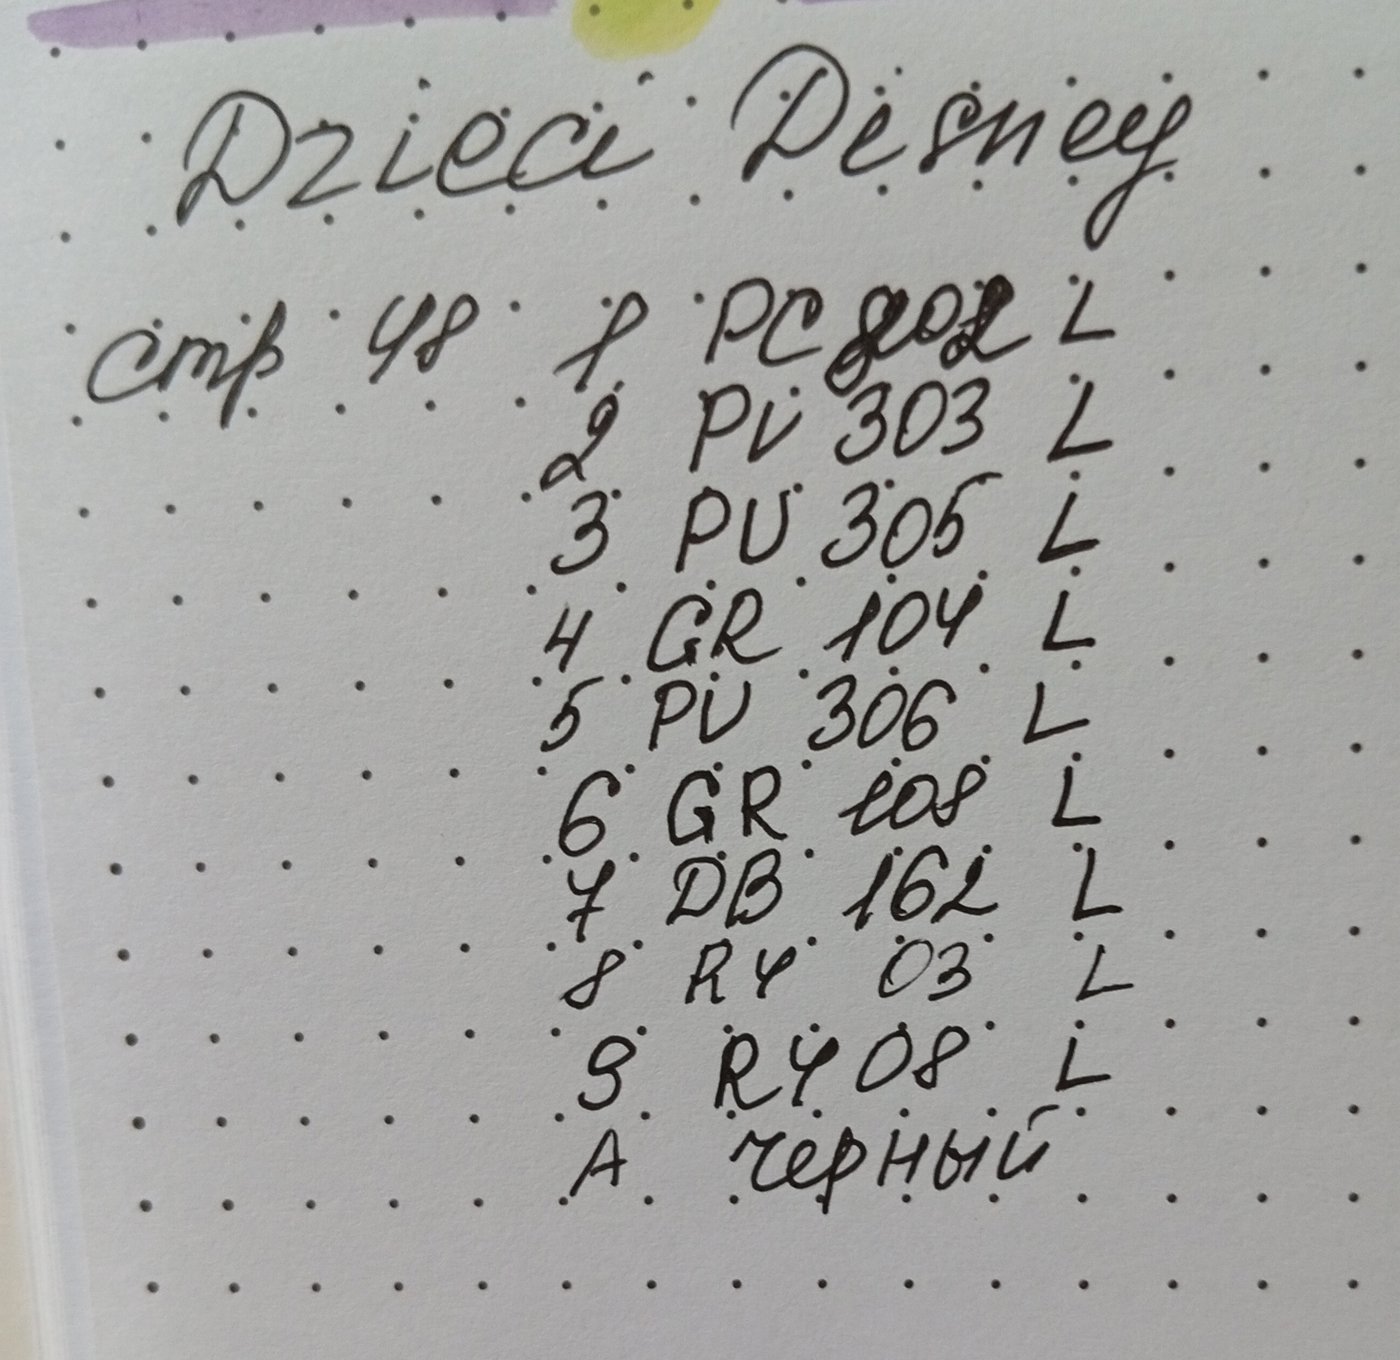 Dzieci Desney
стр 48 1 PC 202 L
2 PV 303 L
3 PU 305 L
4 GR 104 L
5 PU 306 L
6 GR 108 L
7 DB 162 L
8 RY 03 L
9 RY 08 L
A черный